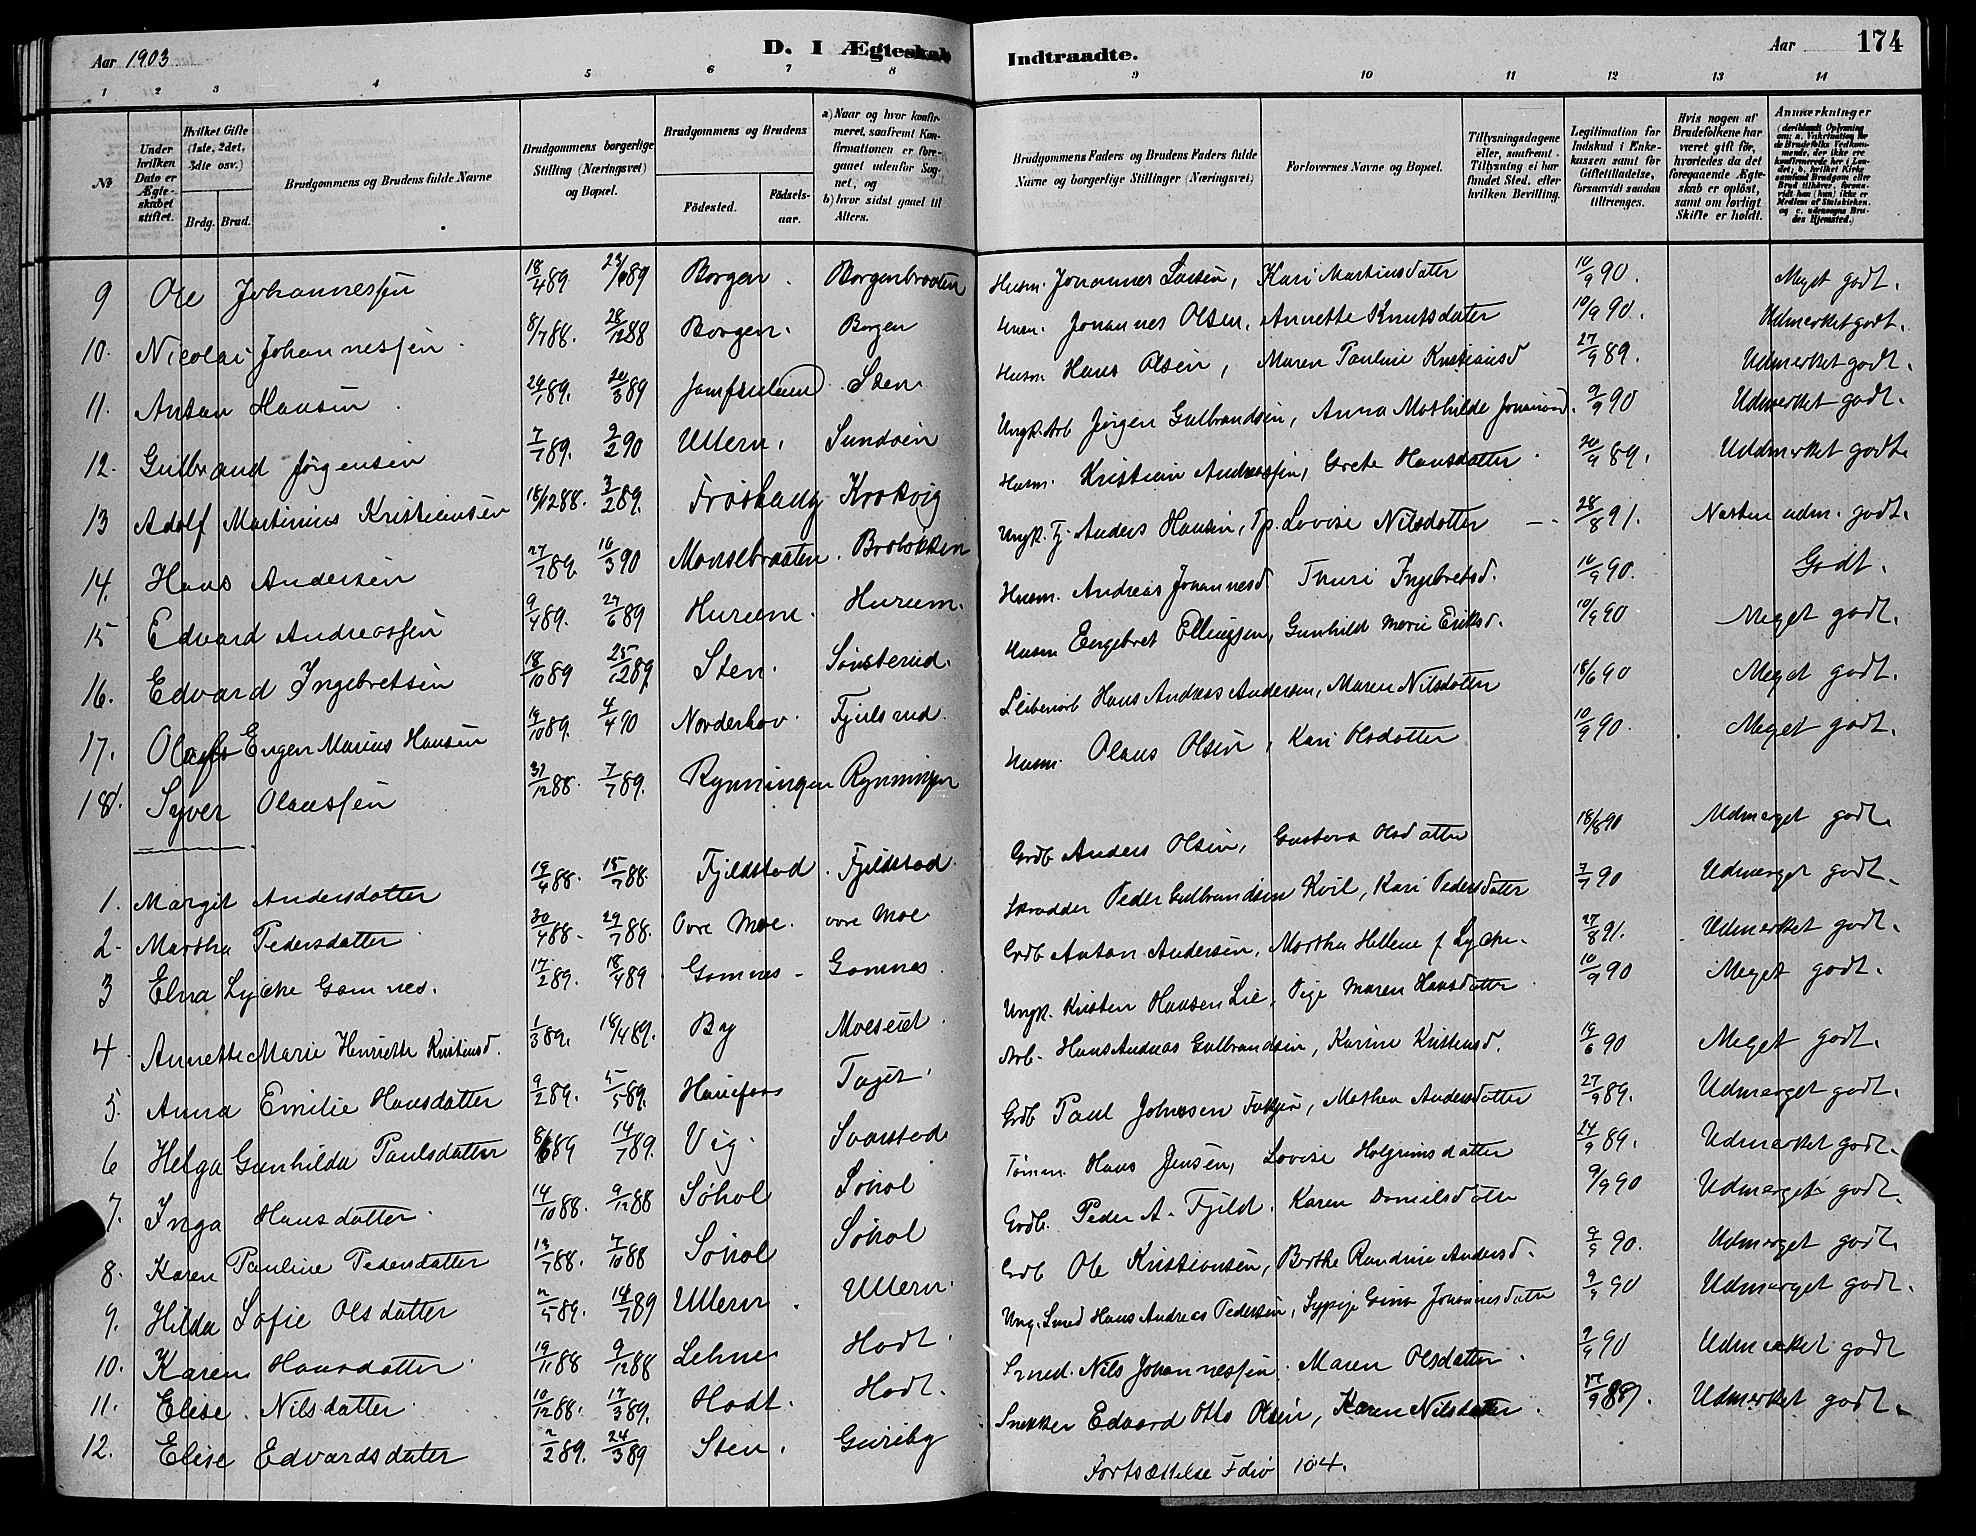 Aar 1903. D. I Ægteskab Indtraadte. Aar 174
1 2 3 4 5 6 7 8 9 10 11 12 13 14
№
Under hvilken Dato er Ægteskabet stiftet.
Hvilket Gifte (1ste, 2det, 3die osv.)
Brdg. Brud.
Brudgommens og Brudens fulde Navne
Brudgommens borgerlige Stilling (Næringsvei) og Bopæl.
Brudgommens og Brudens
Födested.
Födselsaar.
a) Naar og hvor konfirmeret, saafremt Konfirmationen er foregaaet udenfor Sognet, og
b) hvor sidst gaaet til Alters.
Brudgommens Faders og Brudens Faders fulde Navne og borgerlige Stillinger (Næringsvei)
Forlovernes Navne og Bopæl.
Tillysningsdagene eller, saafremt Tillysning ei har fundet Sted, efter hvilken Bevilling.
Legitimation for Indskud i Enkekassen samt for Giftetilladelse, forsaavidt saadan tiltrænges.
Hvis nogen af Brudefolkene har været gift för, hvorledes da det foregaaende Ægteskab er oplöst, samt om lovligt Skifte er holdt.
Anmærkninger
9 Ole Johannessen 18/4 89 23/ 89 Borgen. Borgenbraaten Husm. Johannes Larsen, Kari Martinsdatter 10/9 90. Meget godt.
10. Nicolai Johannessen 8/7 88. 28/12 88 Borgen. Borgen Husm. Johannes Olsen, Annette Knutsdatter 10/9 90. Udmerket godt.
11. Anton Hansen 89. 20/3 89 Sten Husm. Hans Olsen, Maren Pauline Kristiansd 27/9 89. Udmerket godt.
12. Gulbrand Jørgensen 7/7 89. 9/2 90 Ullern, Sundøen Ungk. Arb Jørgen Gulbrandsen, Anna Mathilde 9/9 90 Udmerket godt.
13 Adolf Martinius Kristiansen 18/12 88. 3/2 89. Frøshaug Krokvig Husm. Kristian Andreassen, Grete Hansdatter 89. Uddmerket godt.
14. Hans Andersen 27/7 89. 16/3 90 Monsebraaten. Ungk. Tj. Anders Hansen, Tp. Lovise Nilsdatter 28/8 91. Nesten udm. godt.
15 Edvard Andreassen 9/4 89. 27/6 89 Hurum. Hurum. Husm. Andreas Johannesd Thuri Ingebretsd. 10/9 90. Godt.
16. Edvard Ingebretsen 18/10 89 25/12 89 Sten. Sønsterud. Husm Engebret Ellingsen, Gunhild Marie Eriksd. 10/9 90 Meget godt.
17. Olaf Eugen Marius Hansen 19/10 89. 4/4 90 Norderhov. Fjulsrud. Sliberiarb Hans Andreas Andersen, Maren Nilsdatter 18/6 90 Meget godt.
18. Syver Olaussen 31/12 88. 7/7 89. Rynningen Rynningen Husm. Olaus Olsen, Kari Olsdatter 10/9 90. Meget godt.
1. Margit Andersdatter 19/4 88. 15/7 88. Fjeldstad. Fjeldstad. Grdb Anders Olsen, Gustava Olsdatter 18/8 90 Udmerget godt.
2. Martha Pedersdatter 30/4 88. 29/7 88. Ovre Moe. ovre Moe Skrædder Peder Gulbrandsen Kvil, Kari Pedersdatter 7/7 90 Udmerget godt.
3 Elna Lycke Gomnes. 17/2 89. 18/4 89 Gomnes Gomnes. Grdb Anton Andersen, Martha Hellene f Lycke. 27/8 91. Udmerket godt.
4. Annette Marie Henriette Kristensd. 1/3 89. 18/4 89. By Moeseiet. Ungk. Kristen Hansen Lie, Pige Maren Hansdatter 10/9 90 Meget godt.
5. Anna Emilie Hansdatter 9/2 89. 5/5 89. Hønefoss Arb. Hans Andreas Gulbrandsen, Karine Kristensd. 19/6 90 Meget godt.
6 Helga Gunhilda Paulsdatter 89 14/7 89. Vig. Svarstad Grdb Paul Johnsen, Mathea Andersdatter 27/9 89. Udmerget godt.
7. Inga Hansdatter 14/10 88. 9/12 88 Søhol Søhol Tømm. Hans Jensen, Lovise Holgrimsdatter 24/9 89. Udmerket godt.
8. Karen Pauline Pedersdatter 13/7 88. 7/10 88 Søhol Søhol Grdb. Peder A. Fjeld. Karen Danielsdatter 9/9 90 Udmerget godt.
9. Hilda Sofie Olsdatter 2/5 89. 14/7 89 Ullern. Ullern. Grdb Ole Kristiansen, Berthe Randine Andersd. 9/9 90. Udmerget godt.
10. Karen Hansdatter. 19/11 88 9/12 88 Lehne Hodt. Ung. Smed Hans Andreas Pedersen, Sypige Gina Johannesdatter 9/9 90 Udmerget godt.
11. Elise Nilsdatter. 10/12 88. 17/3 89. Hodt. Hodt. Smed. Nils Johannessen. Maren Olsdatter. 9/9 90 Udmerket godt
12. Elise Edvardsdatter 2/2 89. 24/3 89 Sten. Guriby Snekker Edvard Otto Olsen, Karen Nilsdatter. 89. Udmerket godt.
Fortsættelse Folio 104.